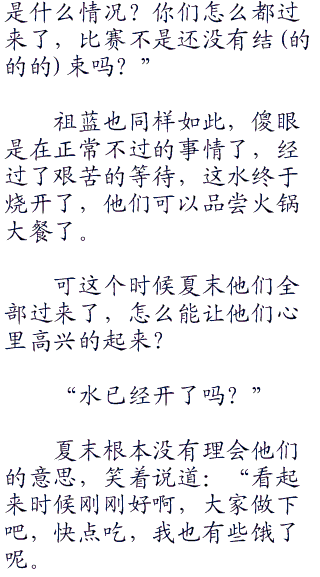 是什么情况？你们怎么都过
来了，比赛不是还没有结(的
的的)束吗？”
祖蓝也同样如此，傻眼
是在正常不过的事情了，经
过了艰苦的等待，这水终于
烧开了，他们可以品尝火锅
大餐了。
可这个时候夏末他们全
部过来了，怎么能让他们心
里高兴的起来？
“水已经开了吗？”
夏末根本没有理会他们
的意思，笑着说道：“看起
来时候刚刚好啊，大家做下
吧，快点吃，我也有些饿了
呢。